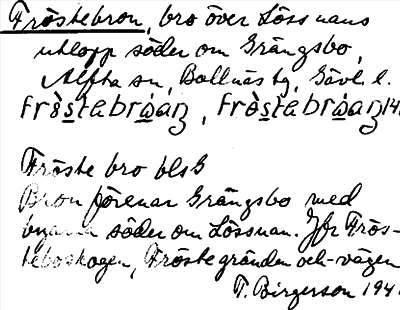 Fröstebron, bro över Lössnans
utlopp söder om Grängsbo,
Alfta sn, Bollnäs tg, Gävl. l.
fröstebróaṉ, fròstebróaṉ 14.
Fröste bro bls G
Bron förenar Grängsbo med
byarna söder om Lössnan. Jfr Frös-
teboskogen, Fröstegränden och -vägen
T. Birgerson 194.